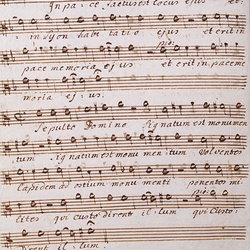 In pa ce factus est locus ejus et
in Syon habi tatio ejus et erit in
pia:
pace memoria ejus et erit in pace me
moria ejus.
Sepulto Domino Signatum est monumen
tum signatum est monu mentum Volventes
Lapidem ad ostium monu menti ponentes mi
pia:
lites qui custo dirent il lum qui Custo:
dirent il lum.